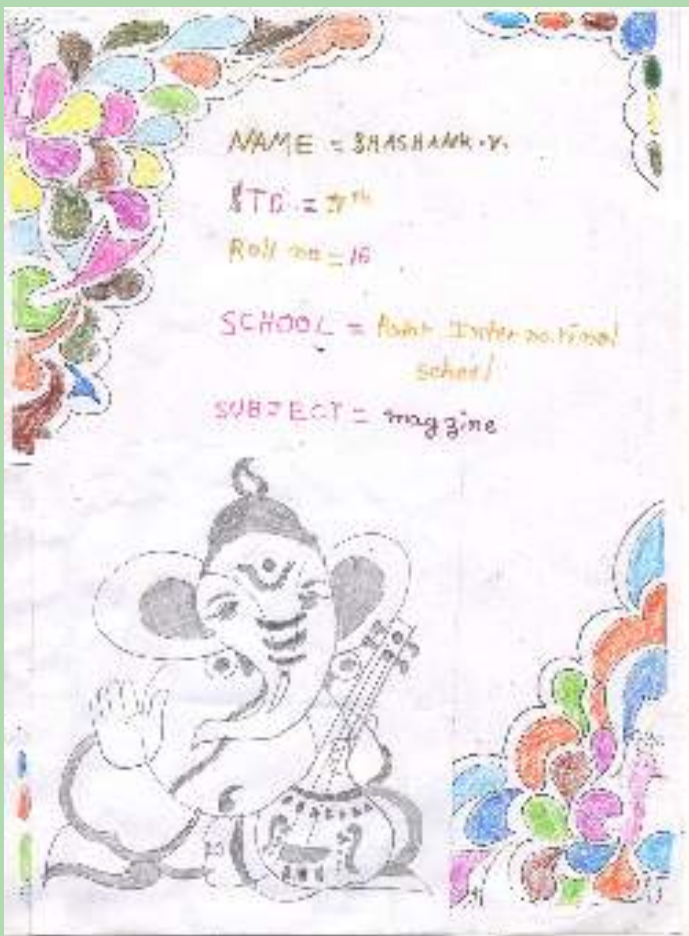 NAME = SHASHANK.V.
STD =
Roll no = 16
SCHOOL = International
school
SUBJECT = magzine